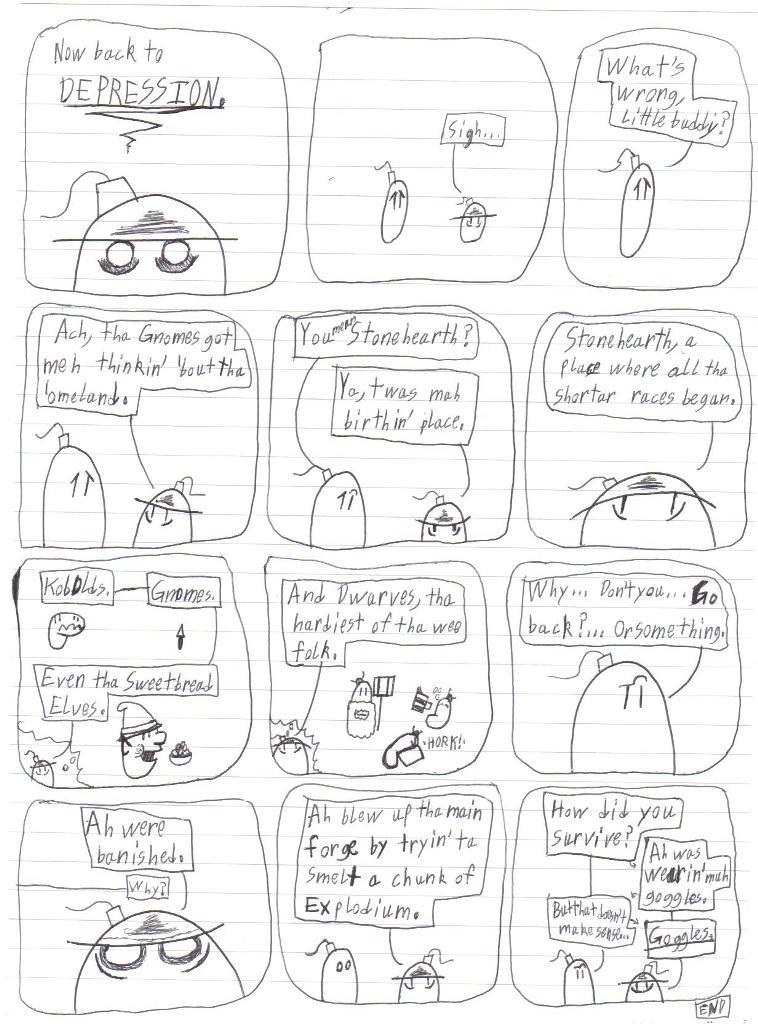 Now back to
DEPRESSION.
Sigh...
What's
wrong,
Little buddy?
Ach, tha Gnomes got
meh thinkin' 'bout tha
'omeland.
You mean Stonehearth?
Ya, t'was mah
birthin' place.
Stonehearth, a
place where all tha
shortar races began.
Kobolds.
Gnomes.
Even tha Sweetbread
Elves.
And Dwarves, tha
hardiest of tha wee
folk.
HORK!
Why... Don't you... Go
back?... Or something.
Ah were
banished.
Why?
Ah blew up tha main
forge by tryin' ta
smelt a chunk of
Explodium.
How did you
survive?
Ah was
wearin' mah
goggles.
But that doesn't
make sense...
Goggles.
END